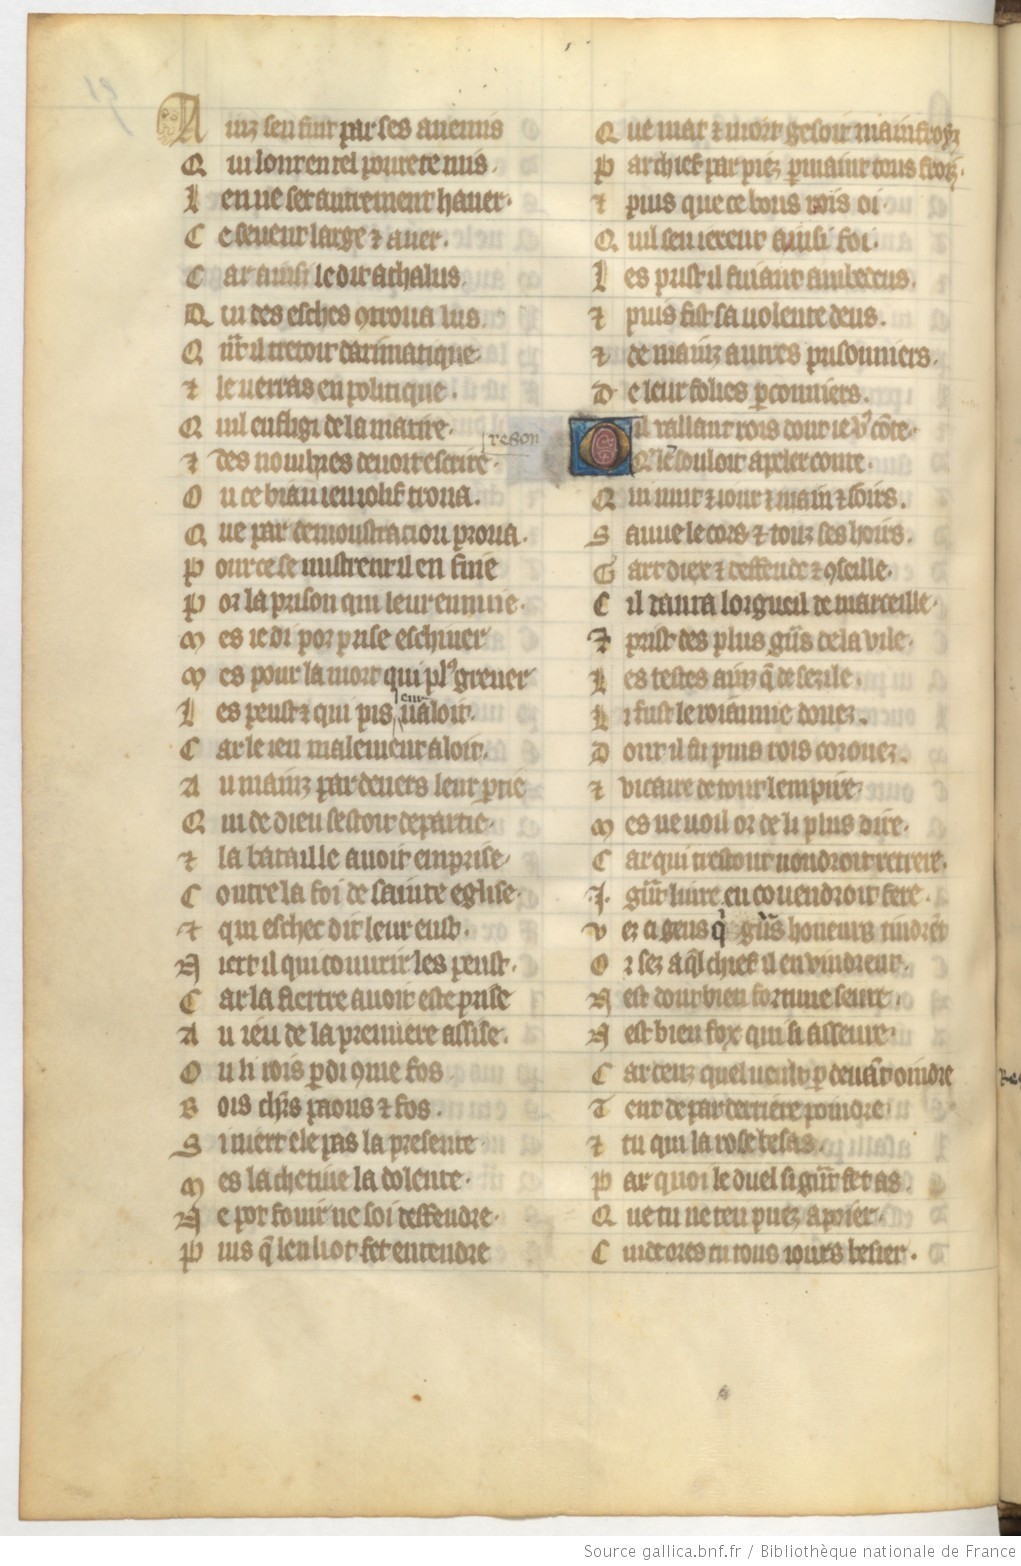 Ainz sen fuit par ses anemis
Qui lont en tel pourete mis.
Len ne set autrement hauer.
Ce seueut large z auer.
Car ainsi le dit athalus
Qui des esches 9troua lus
Qnt il tretoit darimatique
z le uerras en politique.
Quil enflegi de la matire.
z des nombres deuoit escrire.
Ou ce biau ieu iolif troua.
Que par demoustracion proua.
Pour ce se mistrent il en fuie
Por la prison qui leur ennuie.
Mes ie di por prise eschiuer
Mes pour la mort qui pl9 greuer
Les peust z qui pis leur ualoit.
Car le ieu malement aloit.
Au mainz par deuers leur ptie
Qui de dieu sestoit departie.
z la bataille auoit emprise.
Contre la foi de sainte eglise.
z qui eschec dit leur eust.
Niert il qui couurir les peust.
Car la fiertre auoit este prise
Au ieu de la premiere assise.
Ou li rois pdi 9me fos
Rois chrs paons z fos.
Si niert ele pas la presente
Mes la chetiue la dolente.
Ne pot fouir ne soi deffendre.
Puis q len li ot fet entendre
reson
Que mat z mort gesoit mainfroyz
Par chief par piez p mainz tous froiz.
z puis que ce bons rois oi.
Quil sen ierent ainsi foi.
Les prist il fuiant ambedeus.
z puis fist sa uolente deus.
z de mainz autres prisonniers.
De leur folies pconniers.
Cil uaillant rois dont ie t9 conte.
Qen souloit apeler conte.
Qui nuit z iour z main z soirs.
Sauue le cors z touz ses hoirs.
Gart diex z deffende z 9seille.
Cil danta lorgueil de marseille.
z prist des plus gns de la uile.
Les testes ainz q de sezile.
Li fust le roiaume donez.
Dont il fu puis rois coronez.
z uicaire de tout lempire.
Mes ne uoil or de li plus dire.
Car qui trestout uoudroit retrere.
I. gnt liure en couendroit fere.
Vez ci gens q gns honeurs tindret
Or sez a ql chief il en uindrent.
Nest dont bien fortune seure.
Nest bien fox qui si asseure.
Car ceuz quel ueult p deuant oindre
Teut de par derriere poindre.
z tu qui la rose besas.
Par quoi le duel si gnt fet as
Que tu ne ten puez apaier.
Cuidoies tu tous iours besier.